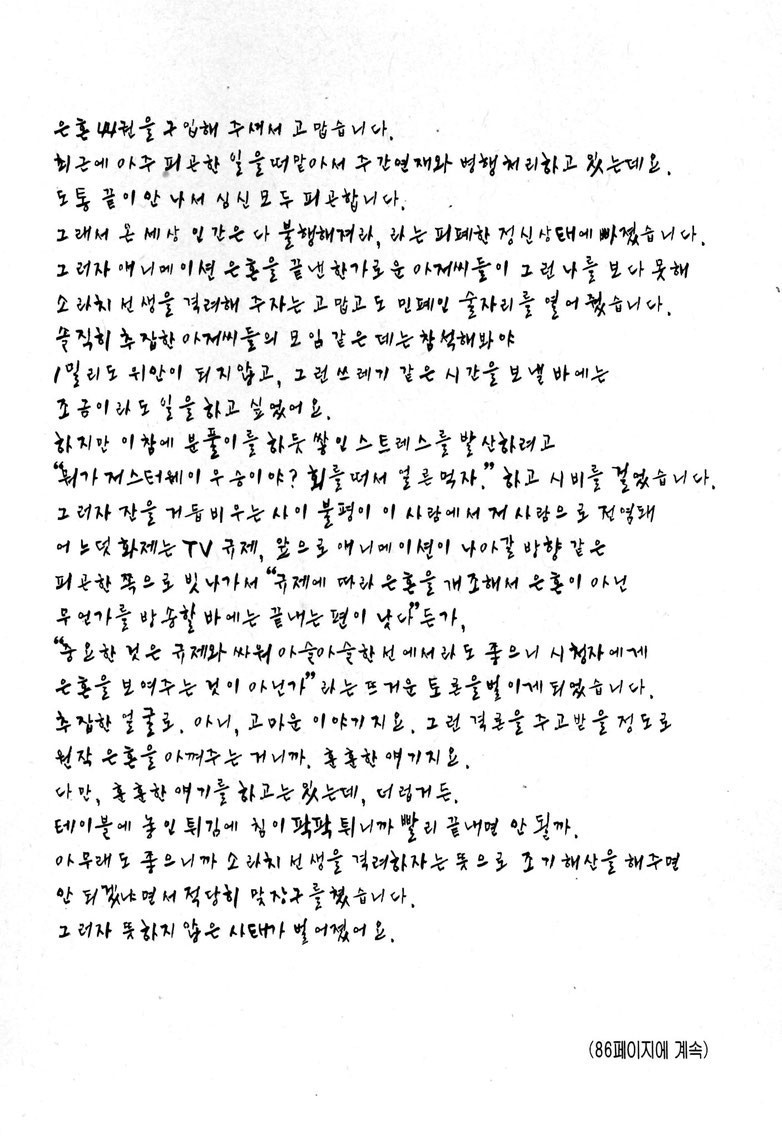 은혼 44권을 구입해 주셔서 고맙습니다.
최근에 아주 피곤한 일을 떠맡아서 주간연재와 병행처리하고 있는데요.
도통 끝이 안 나서 심신 모두 피곤합니다.
그래서 온 세상 인간은 다 불행해져라, 라는 피폐한 정신상태에 빠졌습니다.
그러자 애니메이션 은혼을 끝낸 한가로운 아저씨들이 그런 나를 보다 못해
소라치 선생을 격려해 주자는 고맙고도 민폐인 술자리를 열어 줬습니다.
솔직히 추잡한 아저씨들의 모임 같은 데는 참석해봐야
1밀리도 위안이 되지 않고, 그런 쓰레기 같은 시간을 보낼 바에는
조금이라도 일을 하고 싶었어요.
하지만 이참에 분풀이를 하듯 쌓인 스트레스를 발산하려고
“뭐가 저스터웨이 우승이야? 회를 떠서 얼른 먹자.” 하고 시비를 걸었습니다.
그러자 잔을 거듭 비우는 사이 불평이 이 사람에서 저 사람으로 전염돼
어느덧 화제는 TV 규제, 앞으로 애니메이션이 나아갈 방향 같은
피곤한 쪽으로 빗나가서 “규제에 따라 은혼을 개조해서 은혼이 아닌
무언가를 방송할 바에는 끝내는 편이 낫다”든가,
“중요한 것은 규제와 싸워 아슬아슬한 선에서라도 좋으니 시청자에게
은혼을 보여주는 것이 아닌가”라는 뜨거운 토론을 벌이게 되었습니다.
추잡한 얼굴로. 아니, 고마운 이야기지요. 그런 격론을 주고받을 정도로
원작 은혼을 아껴주는 거니까. 훈훈한 얘기지요.
다만, 훈훈한 얘기를 하고는 있는데, 더럽거든.
테이블에 놓인 튀김에 침이 팍팍 튀니까 빨리 끝내면 안 될까.
아무래도 좋으니까 소라치 선생을 격려하자는 뜻으로 조기해산을 해주면
안 되겠냐면서 적당히 맞장구를 쳤습니다.
그러자 뜻하지 않은 사태가 벌어졌어요.
(86페이지에 계속)